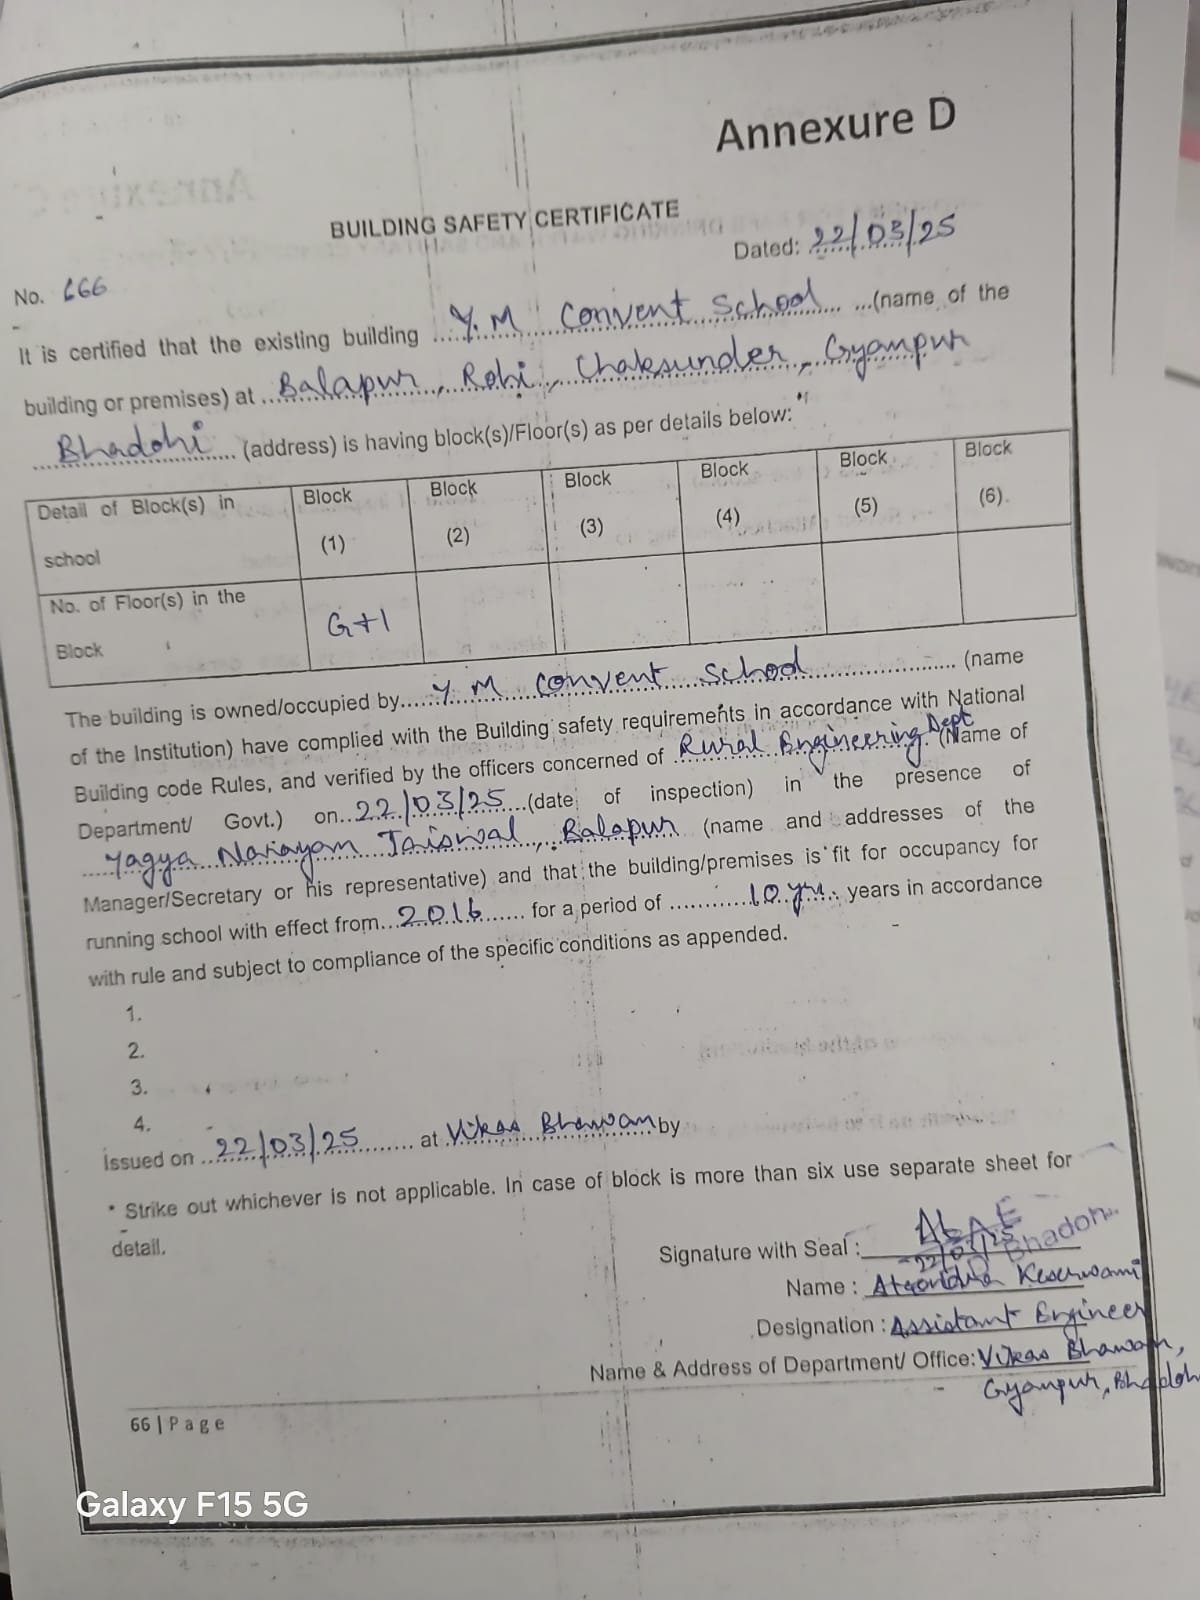 Annexure D
BUILDING SAFETY CERTIFICATE
Dated: 22/03/25
No. 666
It is certified that the existing building Y.M Convent School (name of the
building or premises) at Balapur, Rohi, Chaksunder, Gyanpur
Bhadohi (address) is having block(s)/Floor(s) as per details below:
Detail of Block(s) in school | Block (1) | Block (2) | Block (3) | Block (4) | Block (5) | Block (6)
No. of Floor(s) in the Block | G+1
The building is owned/occupied by Y M Convent School (name
of the Institution) have complied with the Building safety requirements in accordance with National
Building code Rules, and verified by the officers concerned of Rural Engineering Dept (Name of
Department/ Govt.) on 22/03/25 (date of inspection) in the presence of
Yagya Narayan Jaiswal, Balapur (name and addresses of the
Manager/Secretary or his representative) and that the building/premises is fit for occupancy for
running school with effect from 2016 for a period of 10 yrs. years in accordance
with rule and subject to compliance of the specific conditions as appended.
1.
2.
3.
4.
Issued on 22/03/25 at Vikas Bhawan by
* Strike out whichever is not applicable. In case of block is more than six use separate sheet for
detail.
Signature with Seal : 22/03/25 Bhadohi
Name : Keserwani
Designation : Assistant Engineer
Name & Address of Department/ Office: Vikas Bhawan,
Gyanpur, Bhadohi
66 | Page
Galaxy F15 5G